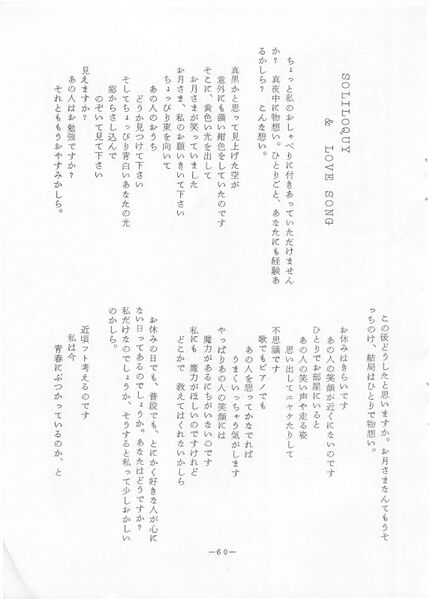 SOLILOQUY
& LOVE SONG
ちょっと私のおしゃべりに付きあっていただけません
か？ 真夜中に物想い。ひとりごと、あなたにも経験あ
るかしら？ こんな想い。
真黒かと思って見上げた空が
意外にも濃い紺色をしていたのです
そこに、黄色い光を出して
お月さまが笑っていました
お月さま、私のお願いきいて下さい
ちょっぴり東を向いて
あの人のおうち
どうか見つけて下さい
そしてちょっぴり青白いあなたの光
窓からさし込んで
のぞいて見て下さい
見えますか？
あの人はお勉強ですか？
それとももうおやすみかしら。
この後どうしたと思いますか。お月さまなんてもうそ
っちのけ、結局はひとりで物想い。
お休みはきらいです
あの人の笑顔が近くにないのです
ひとりでお部屋にいると
あの人の笑い声や走る姿
思い出してニヤケたりして
不思議です
歌でもピアノでも
あの人を想ってかなでれば
うまくいっちゃう気がします
やっぱりあの人の笑顔には
魔力があるにちがいないのです
私にも 魔力がほしいのですけれど
どこかで 教えてはくれないかしら
お休みの日でも、普段でも、とにかく好きな人が心に
ない日ってあるのでしょうか。あなたはどうですか？
私だけなのでしょうか、そうすると私って少しおかしい
のかしら。
近頃フト考えるのです
私は今
青春にぶつかっているのか、と
—60—